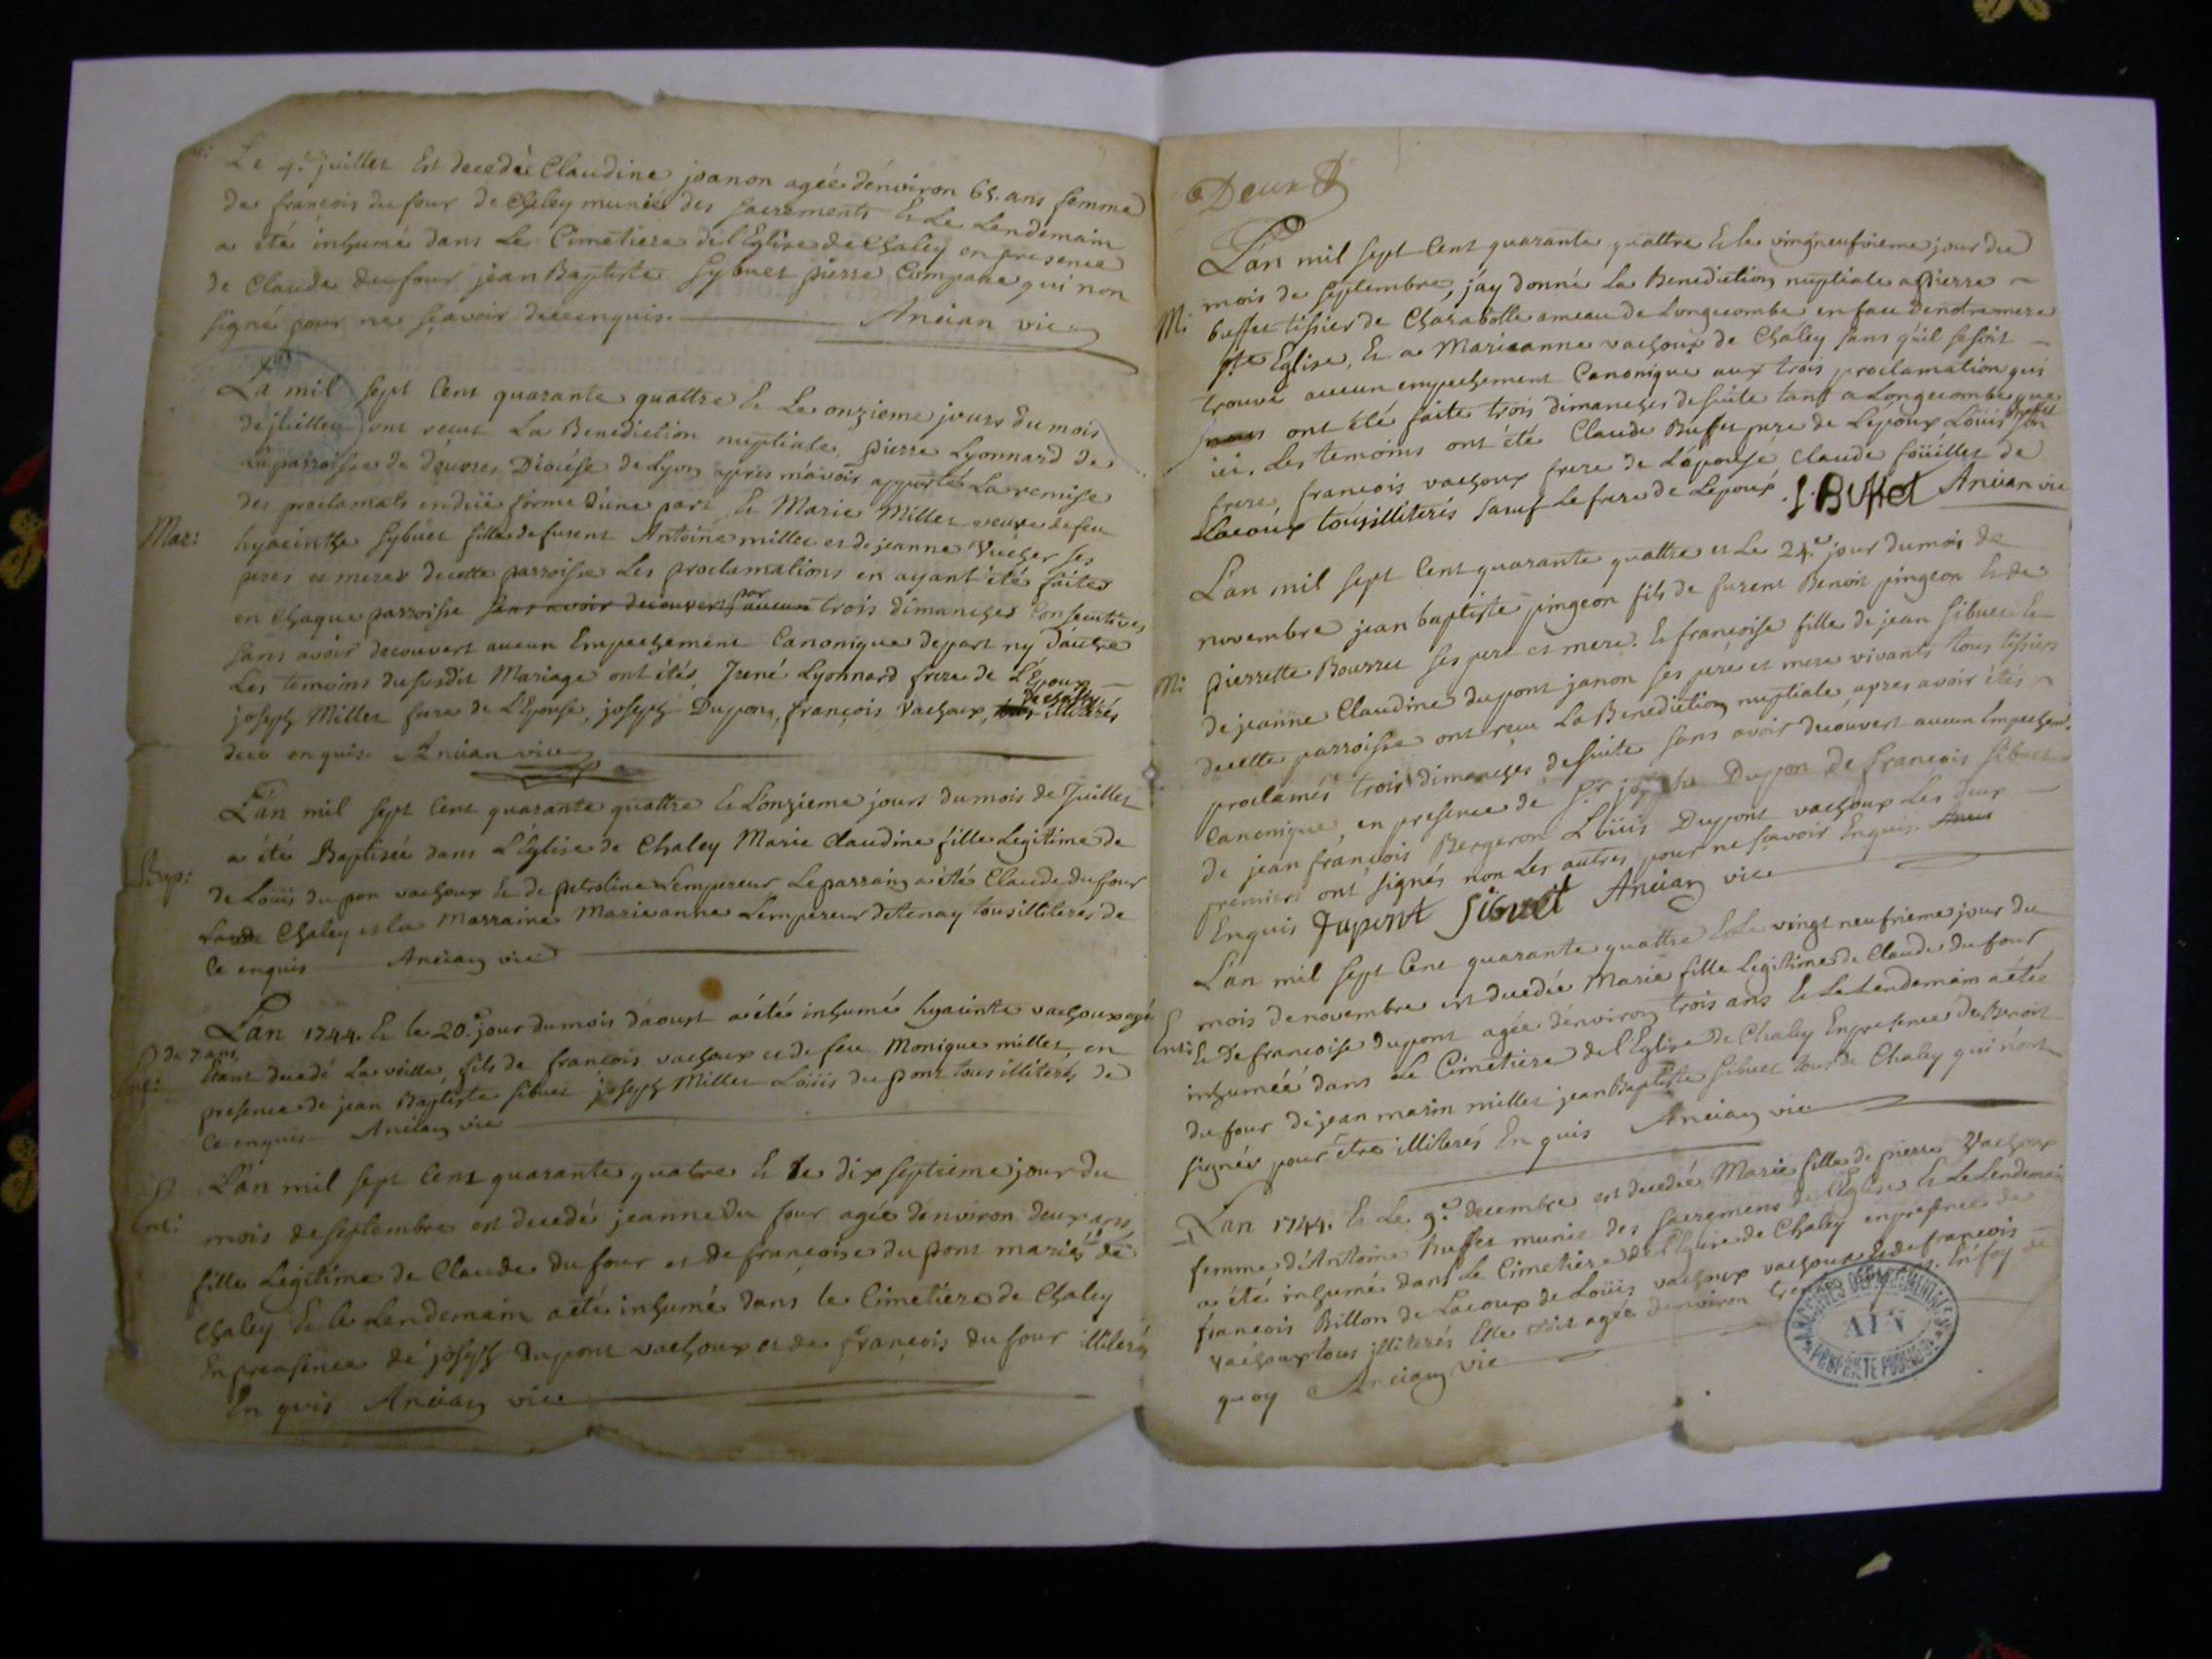 Le 4.e juillet Est decedée Claudine joanon agée d'environ 65. ans femme
de françois du four de Chaley munie des sacrements Et Le Lendemain
a été inhumé dans Le Cimetiere de l'Eglise de Chaley en presence
de Claude du four jean Baptiste Sybuet pierre Compane qui non
signé pour ne sçavoir dece enquis. Ancian vic.
La mil sept Cent quarante quattre Et Le onzieme jours du mois
de juillet ont receu La Benediction nuptiale, pierre Lyonnard de
La parroisse de douvres Diocése de Lyon apres m'avoir apporté La remise
des proclamats en düe forme d'une part, Et Marie Millet veuve de feu
Mar: hyacinthe Sybuet fille de furent Antoine millet et de jeanne Vucher ses
peres et meres de cette parroisse Les proclamations en ayant été faites
en chaque parroisse sans avoir decouvert par aucun trois dimanches Consecutives
sans avoir decouvert aucun Empechement Canonique depart ny d'autre
Les temoins du susdit Mariage ont étés, Irené Lyonnard frere de L'Epoux
joseph Millet frere de L'Epouse, joseph Dupont, françois Vachoux, de chaley illiterés
dece enquis. Ancian vic
L'an mil sept Cent quarante quattre Et L'onzieme jours du mois de Juillet
a été Baptisée dans L'Eglise de Chaley Marie Claudine fille Legitime de
Bap: de Loüis du pon vachoux Et de petroline Lempereur Le parrain a été Claude du four
Chaley et la Marraine Marieanne Lempereur de tenay tous illiterés de
Ce enquis Ancian vic
L'an 1744. Et le 20.e jour du mois d'aoust a été inhumé hyacinte vachoux agé
de 7 ans
Etant decedé La veille, fils de françois vachoux et de feu Monique millet, en
presence de jean Baptiste sibuet joseph Millet Loüis du pont tous illiterés de
Ce enquis Ancian vic
L'an mil sept Cent quarante quatre Et Le dix septieme jour du
Ent: mois de septembre est decedé jeanne du four agée d'environ deux ans
fille Legitime de Claude du four et de françoise du pont mariés de
Chaley Et le Lendemain a été inhumé dans le Cimetiere de Chaley
En preasence de joseph dupont vachoux et de françois du four illiterés
En quis Ancian vic
Deux
L'an mil sept Cent quarante quattre Et le vingneufvieme jour du
mois de septembre, j'ay donné La Benediction nuptiale a pierre
M: buffet tissier de Charabotte ameau de Longecombe en face de notre mere
ste Eglise, Et a Marieanne vachoux de Chaley sans qu'il se soit
trouvé aucun empechement Canonique aux trois proclamation qui
nous ont été faite trois dimanches de suite tant a Longecombe que
ici. Les temoins ont été Claude Buffet pere de L'epoux Loüis Buffet son
frere françois vachoux frere de L'epouse Claude foüillet de
Lacoux tous illiterés sauf Le frere de L'epoux. L. Buffet Ancian vic
L'an mil sept Cent quarante quattre et Le 24.e jour du mois de
novembre jean baptiste pingeon fils de furent Benoit pingeon Et de
M: pierrette Bourret ses pere et mere. Et françoise fille de jean sibuet Et
de jeanne Claudine dupont janon ses pere et mere vivants tous tissiers
de cette parroisse ont reçu La Benediction nuptiale, apres avoir étés
proclamés trois dimanches de suite sans avoir decouvert aucun Empechem.t
Canonique, en presence de Sr joseph Dupon de françois sibuet
de jean françois Bergeron Loüis Dupont vachoux Les deux
premiers ont signés non Les autres pour ne sçavoir Enquis.
Enquis Dupont Sibuet Ancian vic
L'an mil sept Cent quarante quattre Et Le vingt neufvieme jour du
mois de novembre est decedée Marie fille Legitime de Claude du four
Ent: Et De françoise dupont agée d'environ trois ans Et Le Lendemain a été
inhumée dans Le Cimetiere de l'Eglise de Chaley En presence de Benoit
du four de jean marin millet jean Baptiste sibuet tous de Chaley qui n'ont
signés pour être illiterés En quis Ancian vic
L'an 1744. Et Le 9.e decembre est decedée Marie fille de pierre Vachoux
femme d'Antoine Buffet munie des sacremens de l'Eglise Et Le Lendemain
a été inhumé dans Le Cimetiere de l'Eglise de Chaley en presence de
françois Billon de Lacoux de Loüis vachoux vachoux Et de françois
Vachoux tous illiterés Elle etoit agée d'environ ans. En foy de
quoy Ancian vic
ARCHIVES DEPARTEMENTALES
AIN
PROPRIETE PUBLIQUE